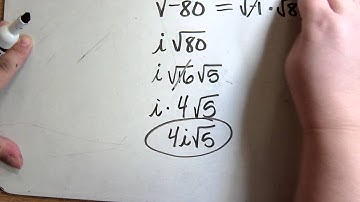 √-80 = √-1 · √8
i √80
i √16 √5
i · 4 √5
4i√5